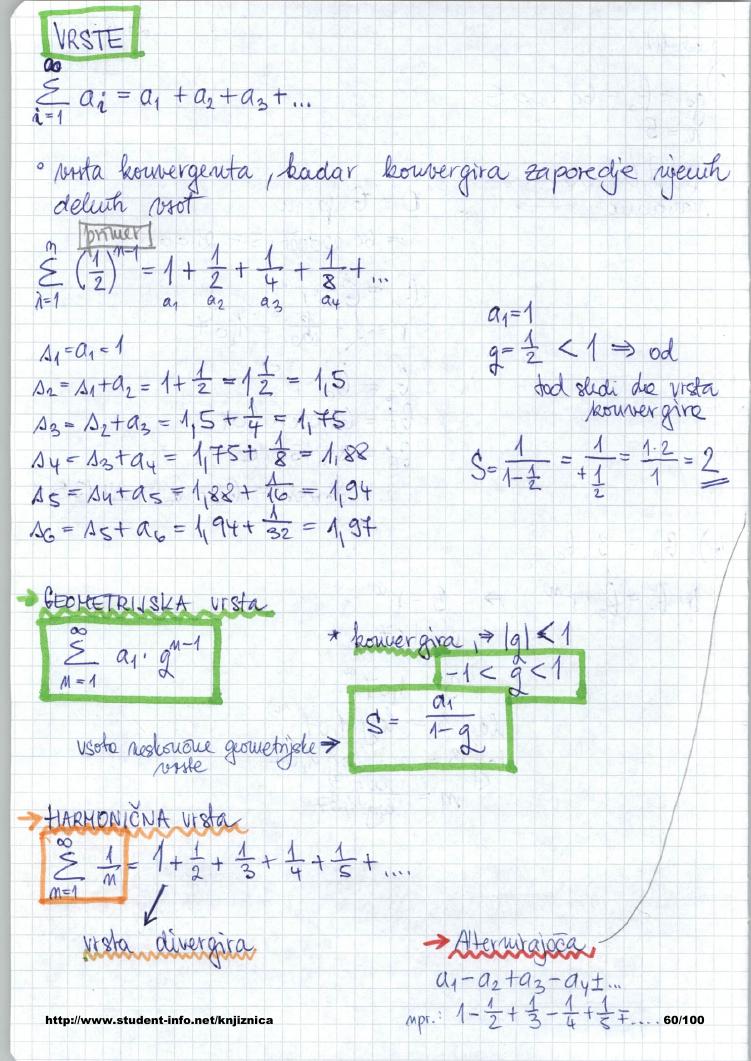 VRSTE
∞
∑ a_i = a_1 + a_2 + a_3 + ...
i=1
° vrsta konvergenta, kadar konvergira zaporedje njenih
delnih vsot
primer
n
∑ (1/2)^(n-1) = 1 + 1/2 + 1/4 + 1/8 + ...
i=1 a_1 a_2 a_3 a_4
s_1 = a_1 = 1
s_2 = s_1 + a_2 = 1 + 1/2 = 1 1/2 = 1,5
s_3 = s_2 + a_3 = 1,5 + 1/4 = 1,75
s_4 = s_3 + a_4 = 1,75 + 1/8 = 1,88
s_5 = s_4 + a_5 = 1,88 + 1/16 = 1,94
s_6 = s_5 + a_6 = 1,94 + 1/32 = 1,97
a_1 = 1
g = 1/2 < 1 ⇒ od
tod sledi da vrsta
konvergira
S = 1/(1 - 1/2) = 1/(+ 1/2) = 1·2/1 = 2
→ GEOMETRIJSKA vrsta
∞
∑ a_1 · g^(n-1)
n=1
* konvergira, ⇒ |g| < 1
-1 < g < 1
vsota neskončne geometrijske ⇒
vrste
S = a_1/(1 - g)
→ HARMONIČNA vrsta
∞
∑ 1/n = 1 + 1/2 + 1/3 + 1/4 + 1/5 + ....
n=1
vrsta divergira
→ Alternirajoča
a_1 - a_2 + a_3 - a_4 ± ...
npr.: 1 - 1/2 + 1/3 - 1/4 + 1/5 ∓ ....
http://www.student-info.net/knjiznica
60/100